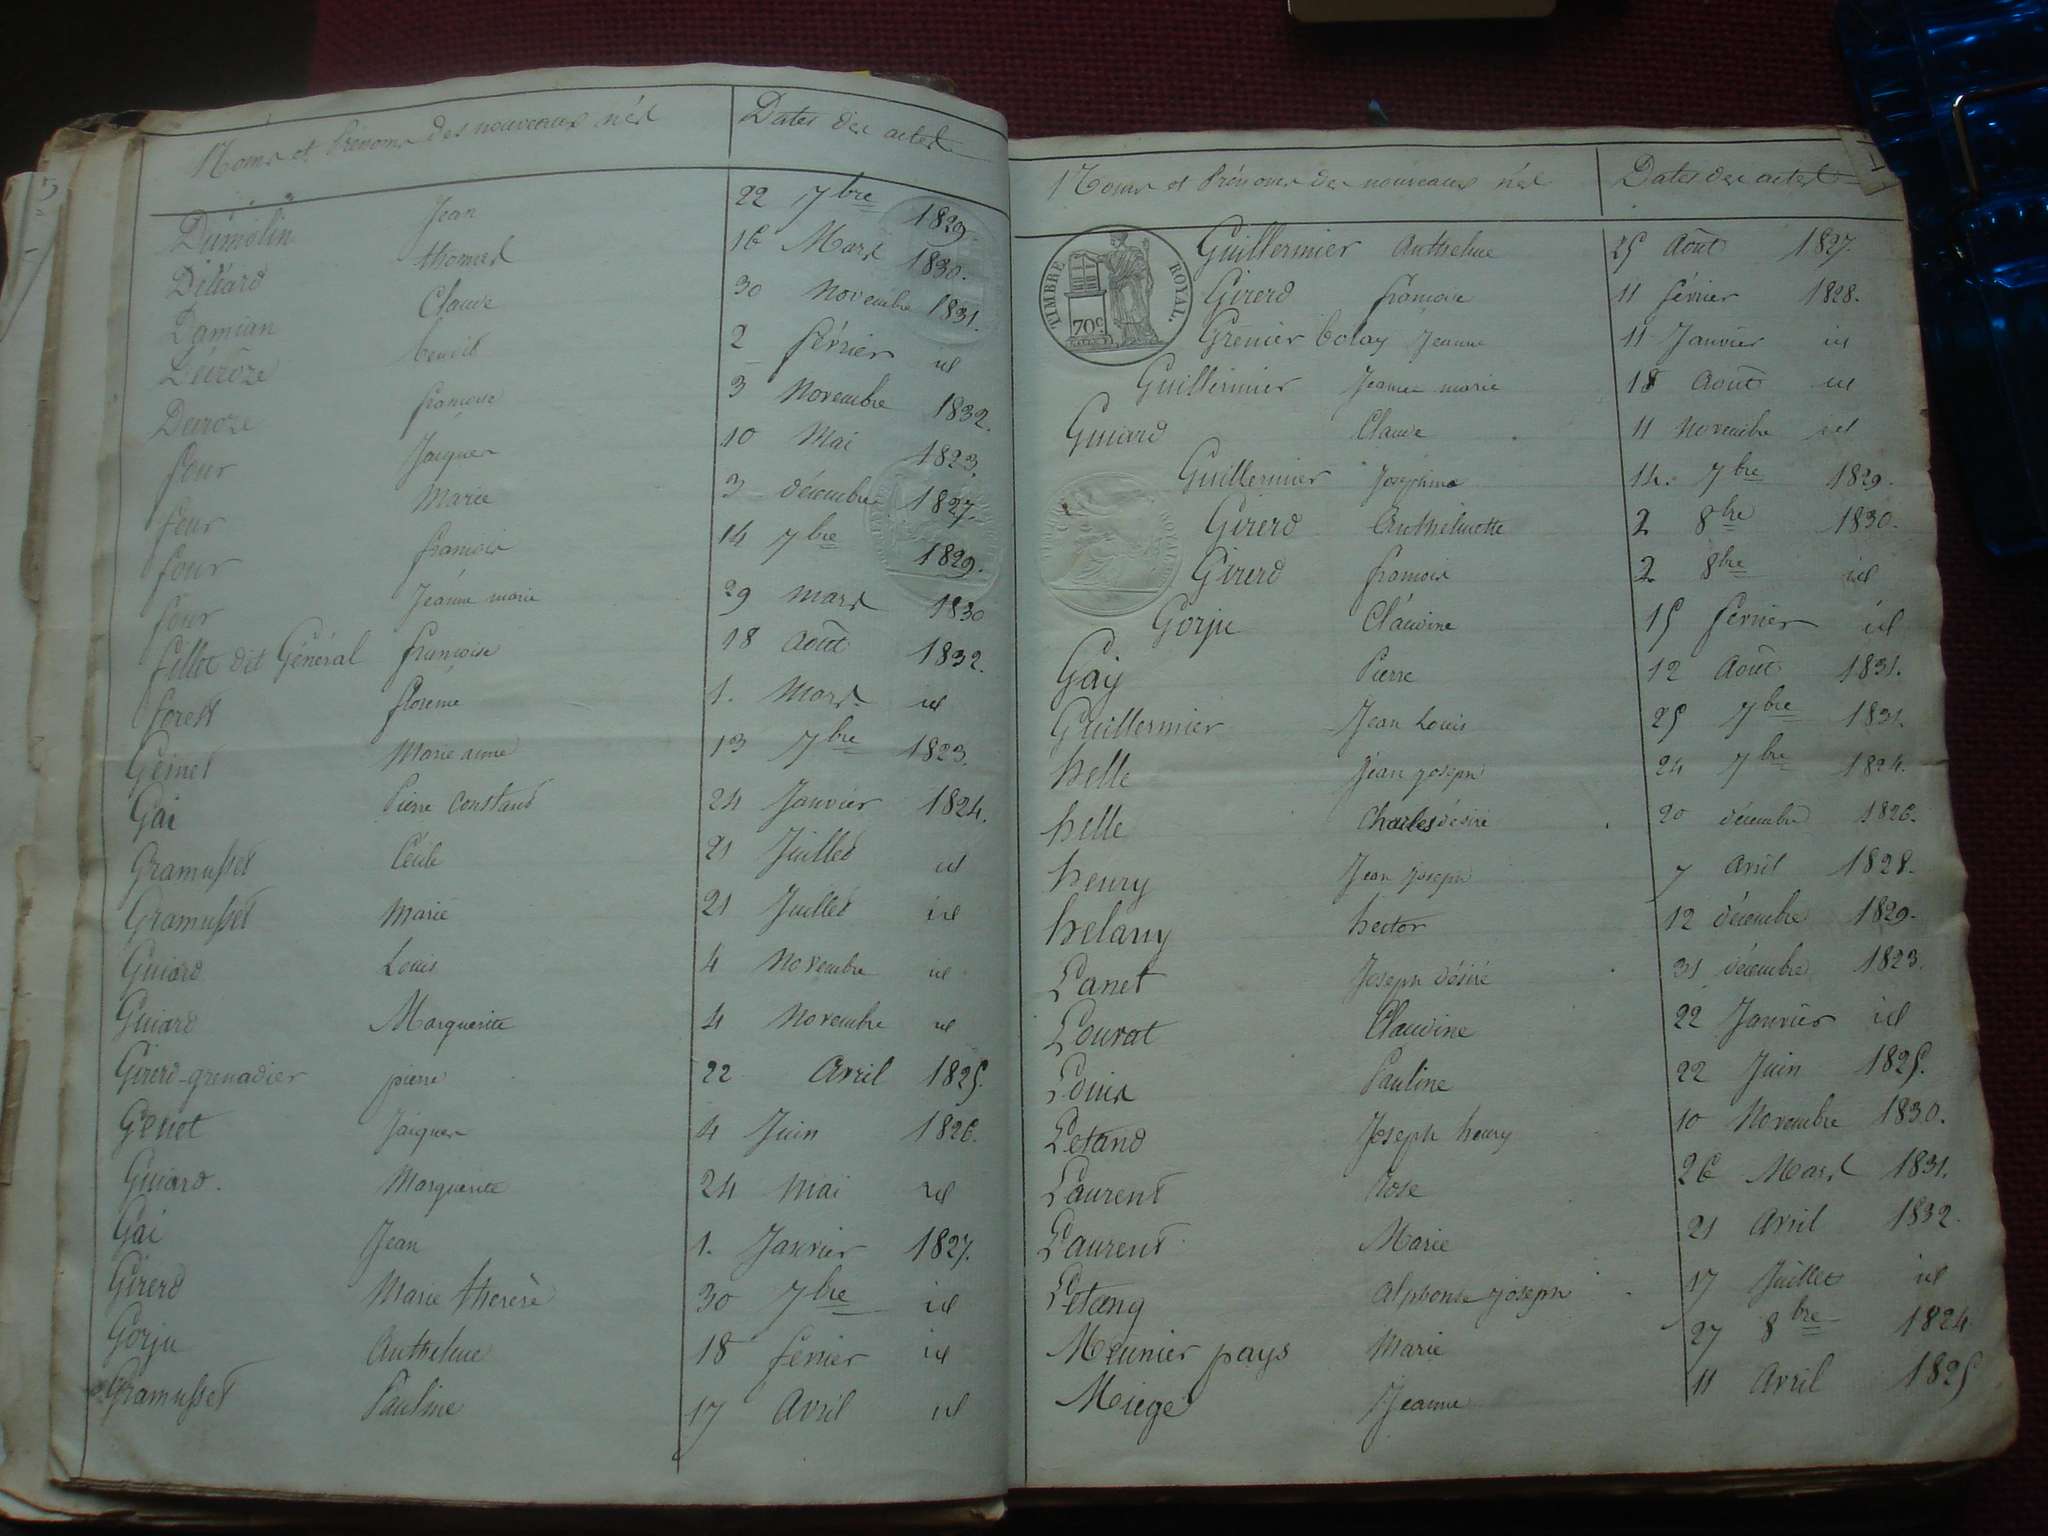 Noms et Prénoms des nouveaux nés Dates des actes
Dumolin Jean 22 7bre 1829
thomas 16 Mars 1830.
Damian Claude 30 Novembre 1831.
Deiroze benoit 2 février id
Deiroze françoise 3 Novembre 1832.
four Jacques 10 Mai 1823.
four Marie 3 décembre 1827.
four françois 14 7bre 1829.
four Jeanne marie 29 mars 1830
fillot dit Général françoise 18 Août 1832.
forest florème 1. Mars id
Geinet Marie anne 13 7bre 1823.
Gai Pierre Constant 24 Janvier 1824.
Gramusset Cécile 21 Juillet id
Gramusset Marie 21 Juillet id
Guiard Louis 4 Novembre id
Guiard Marguerite 4 Novembre id
Girerd-grenadier pierre 22 Avril 1825.
Genot Jacques 4 Juin 1826.
Guiard. Marguerite 24 Mai id
Gai Jean 1. Janvier 1827.
Girerd Marie thérèse 30 7bre id
Gorju Anthelme 18 fevrier id
Gramusset Pauline 17 Avril id
Noms et Prénoms des nouveaux nés Dates des actes
TIMBRE ROYAL.
70c
Guillermier Anthelme 25 Août 1827.
Girerd françoise 11 février 1828.
Grenier bolay Jeanne 11 Janvier id
Guillermier Jeanne marie 18 Août id
Guiard Claude 11 Novembre id
Guillermier Joséphine 14. 7bre 1829.
Girerd Anthelmette 2 8bre 1830.
Girerd françois 2 8bre id
Gorju Claudine 15 fevrier id
Gay Pierre 12 Août 1831.
Guillermier Jean Louis 25 7bre 1831.
helle Jean joseph 24 7bre 1824.
helle Charles désiré 20 décembre 1826.
henry Jean joseph 7 Avril 1828.
helany hector 12 décembre 1829.
Lanet Joseph désiré 31 décembre 1823.
Louvat Claudine 22 Janvier id
Louis Pauline 22 Juin 1825.
Letand Joseph henry 10 Novembre 1830.
Laurent Rose 26 Mars 1831.
Laurent Marie 21 Avril 1832.
Letang Alphonse joseph 17 Juillet id
Meunier pays Marie 27 8bre 1824
Miege Jeanne 11 Avril 1825